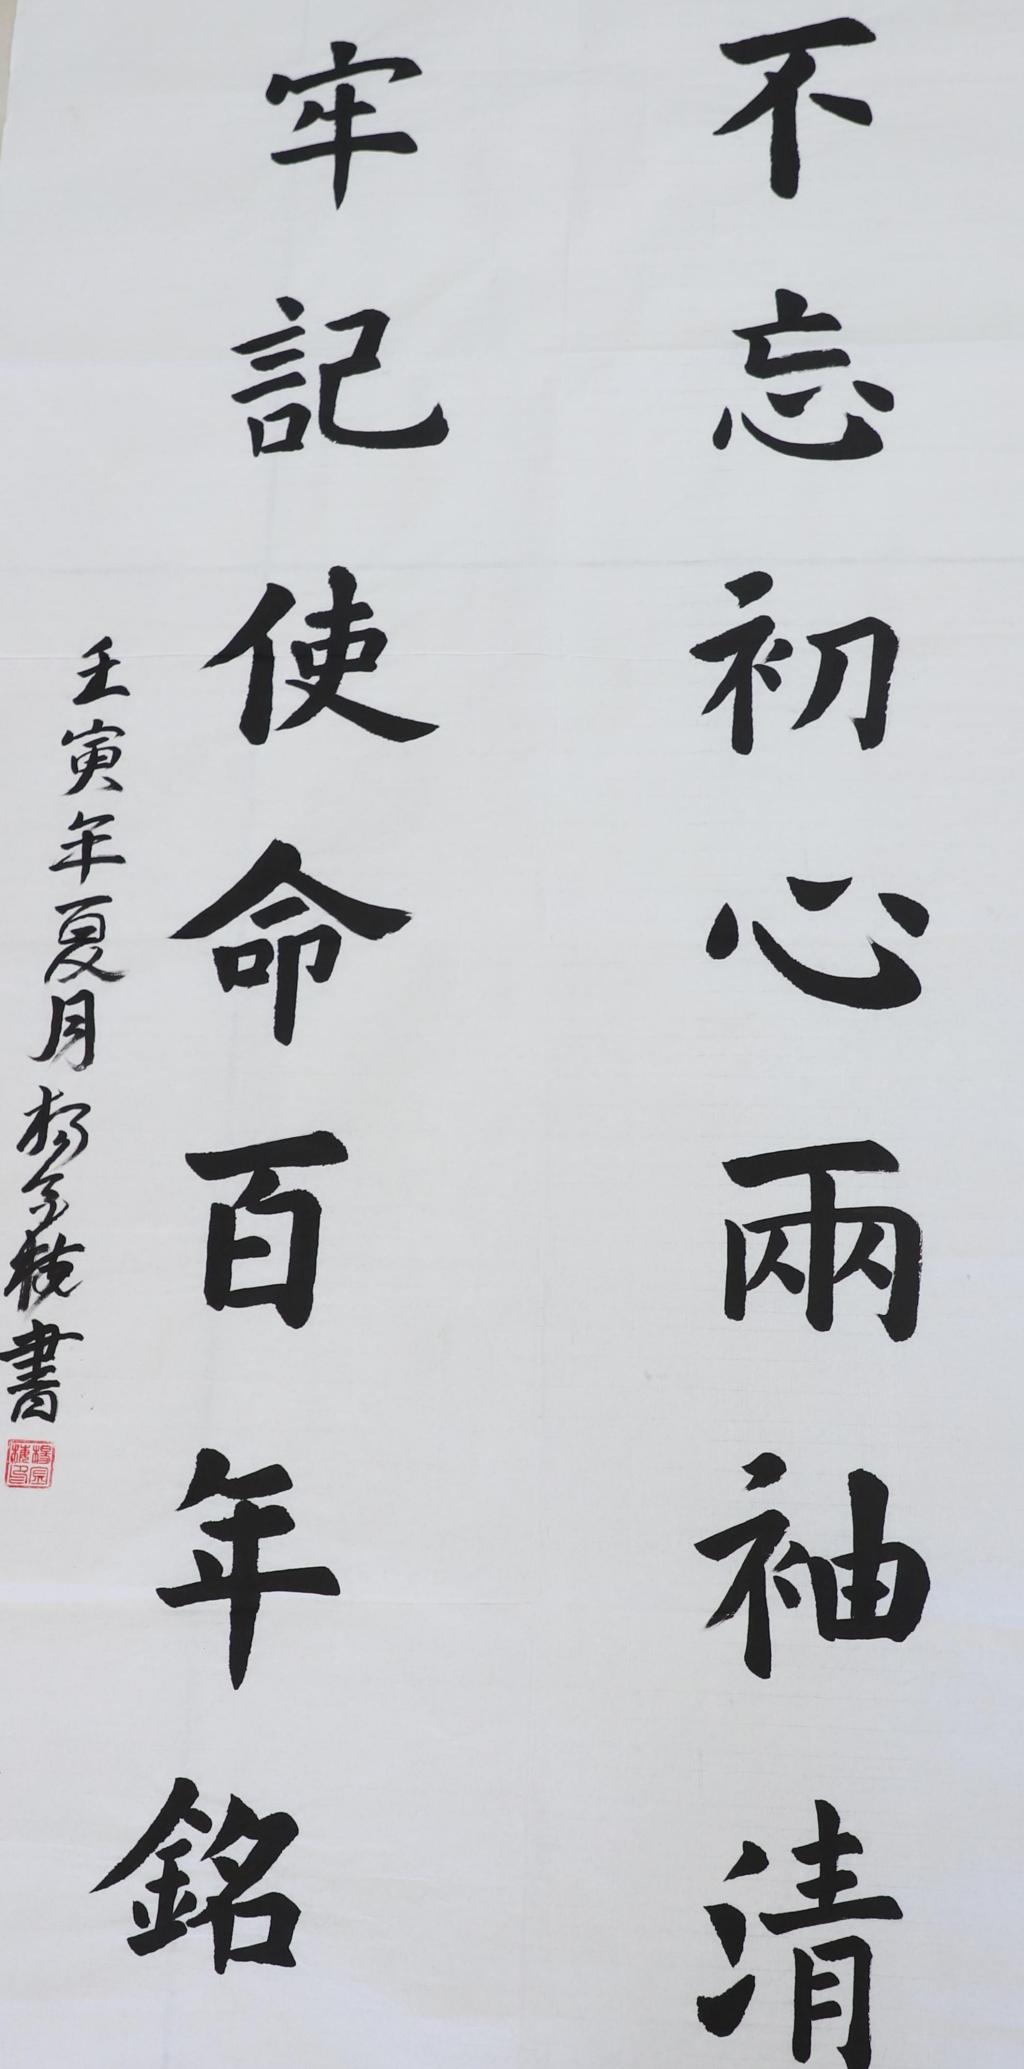 不忘初心兩袖清
牢記使命百年銘
壬寅年夏月楊書